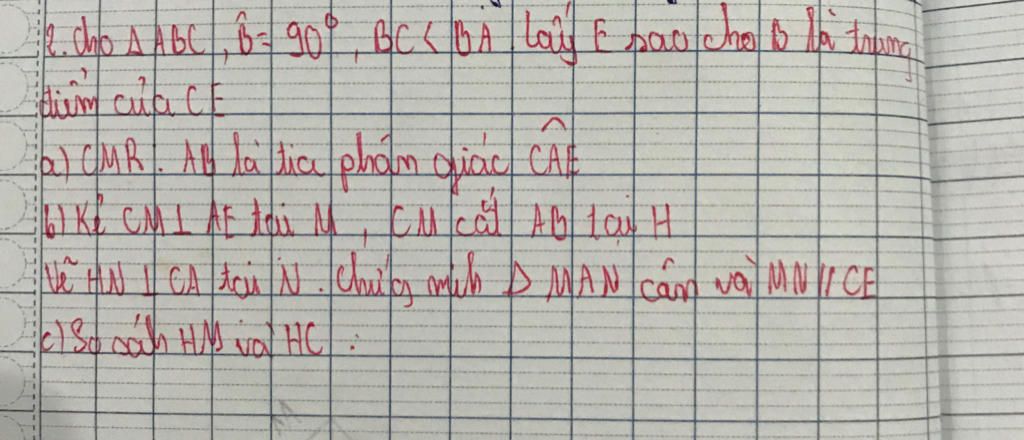 2. Cho Δ ABC, B̂ = 90°, BC < BA lấy E sao cho B là trung
điểm của CE
a) CMR. AB là tia phân giác CÂE
b) Kẻ CM ⊥ AE tại M, CM cắt AB tại H
Vẽ HN ⊥ CA tại N. Chứng minh Δ MAN cân và MN // CE
c) So sánh HM và HC.